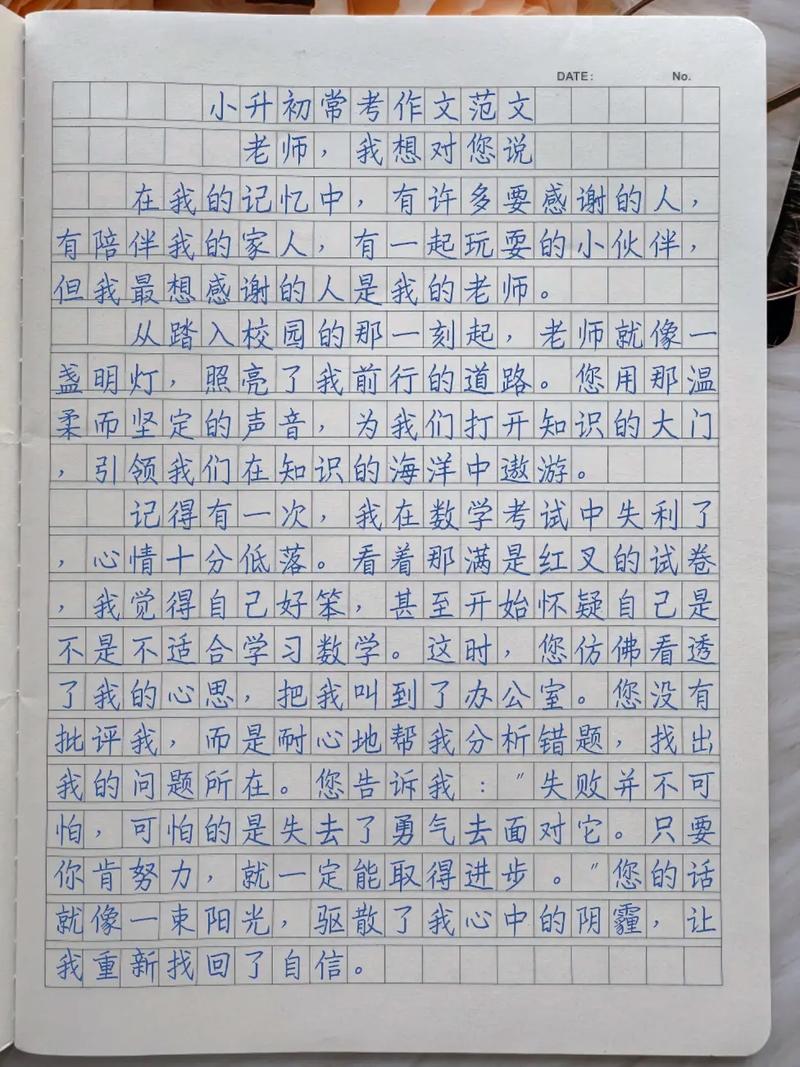 DATE: No.
小升初常考作文范文
老师，我想对您说
在我的记忆中，有许多要感谢的人，
有陪伴我的家人，有一起玩耍的小伙伴，
但我最想感谢的人是我的老师。
从踏入校园的那一刻起，老师就像一
盏明灯，照亮了我前行的道路。您用那温
柔而坚定的声音，为我们打开知识的大门
，引领我们在知识的海洋中遨游。
记得有一次，我在数学考试中失利了
，心情十分低落。看着那满是红叉的试卷
，我觉得自己好笨，甚至开始怀疑自己是
不是不适合学习数学。这时，您仿佛看透
了我的心思，把我叫到了办公室。您没有
批评我，而是耐心地帮我分析错题，找出
我的问题所在。您告诉我："失败并不可
怕，可怕的是失去了勇气去面对它。只要
你肯努力，就一定能取得进步。"您的话
就像一束阳光，驱散了我心中的阴霾，让
我重新找回了自信。